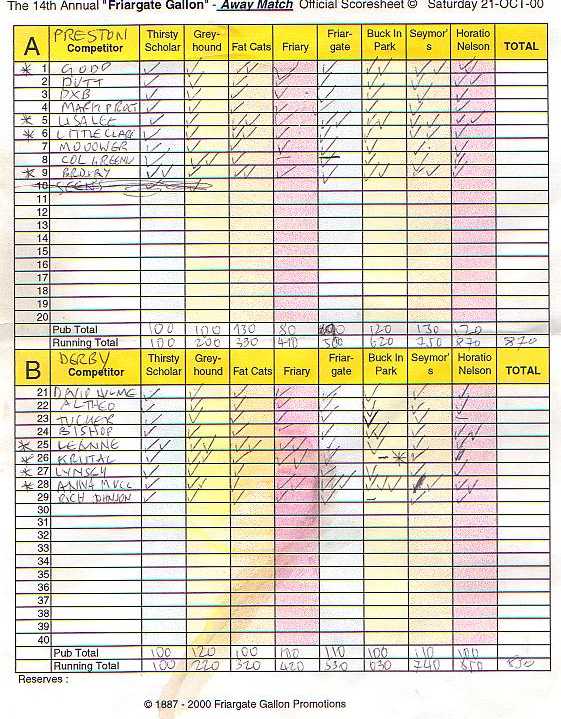 The 14th Annual "Friargate Gallon" - Away Match Official Scoresheet © Saturday 21-OCT-00
A PRESTON Competitor Thirsty Scholar Grey-hound Fat Cats Friary Friar-gate Buck In Park Seymor's Horatio Nelson TOTAL
* 1 GODD
2 DUTT
3 DXB
4 MARK PROCT
* 5 LISALEE
* 6 LITTLE CLARE
7 MOOOWER
8 COL
* 9
10
11
12
13
14
15
16
17
18
19
20
Pub Total 100 100 130 80 120 130 120
Running Total 100 200 330 410 500 620 750 870 870
B DERBY Competitor Thirsty Scholar Grey-hound Fat Cats Friary Friar-gate Buck In Park Seymor's Horatio Nelson TOTAL
21 DAVID HULME
22 ALTHEO
23 TUCKER
24 BISHOP
* 25 LEANNE
* 26 KRUTAC
* 27 LYNSEY
* 28 ANNA MULL
29 RICH JOHNSON
30
31
32
33
34
35
36
37
38
39
40
Pub Total 100 120 100 100 110 100 110 100
Running Total 100 220 320 420 530 630 740 850
Reserves :
© 1887 - 2000 Friargate Gallon Promotions